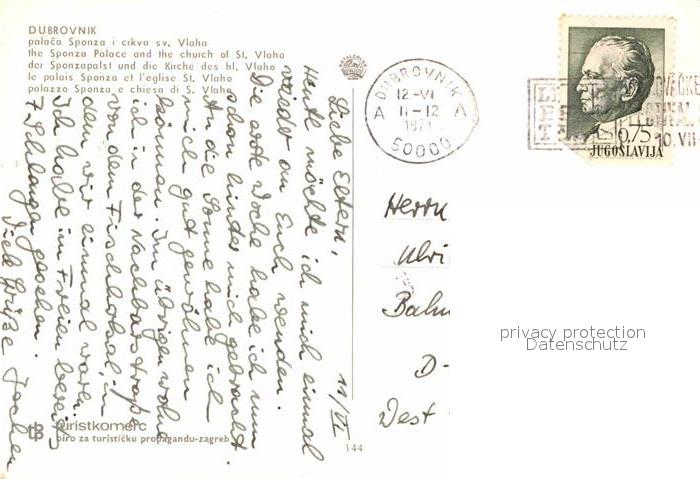 DUBROVNIK
palača Sponza i crkva sv. Vlaha
the Sponza Palace and the church of St. Vlaho
der Sponzapalst und die Kirche des hl. Vlaho
le palais Sponza et l'église St. Vlaho
palazzo Sponza e chiesa di S. Vlaho
DUBROVNIK
A A
12-VI
11-12
50000
0,75
JUGOSLAVIJA
11/VI
Liebe Eltern,
Heute möchte ich mich einmal
wieder an Euch wenden.
Die erste Woche habe ich nun
schon hinter mich gebracht.
An die Sonne habe ich
mich gut gewöhnen
können. Im übrigen wohne
ich in der Nachbarstraße
von dem Fischlokal, in
dem wir einmal waren.
Ich habe im Freien bereits
7 Schlangen gesehen.
Viele Grüße Jochen
Herrn
Ulri
Bahn
D-
West
privacy protection
Datenschutz
turistkomerc
biro za turističku propagandu-zagreb
144